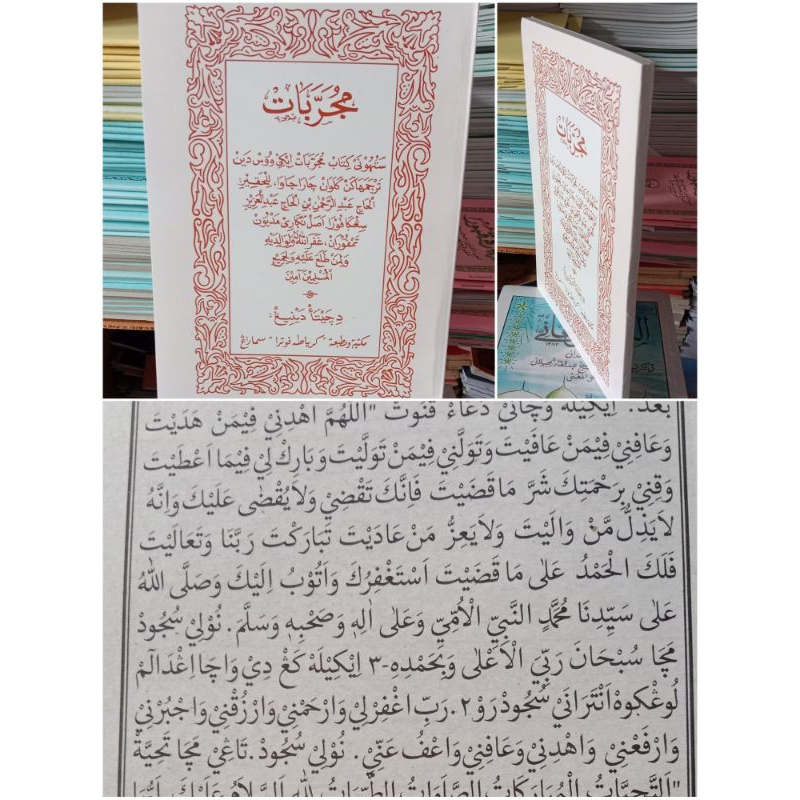 مجرّبات
سڤهوني كتاب مجربات ايكي ووس دين
ترجمهاكن كلوان چارا جاوا، للحقير
الحاج عبد الرحمن بن الحاج عبد العزيز
اصل
غفر الله له ولوالديه
ولمن طلع عليه ولجميع
المسلمين آمين
دچيتاء دينيڠ:
مكتبة ومطبعة "كرياطه فوترا" سماراڠ
مجرّبات
بعد. ايكيله وچاني دعاء قنوت "اَللّٰهُمَّ اهْدِنِيْ فِيْمَنْ هَدَيْتَ
وَعَافِنِيْ فِيْمَنْ عَافَيْتَ وَتَوَلَّنِيْ فِيْمَنْ تَوَلَّيْتَ وَبَارِكْ لِيْ فِيْمَا اَعْطَيْتَ
وَقِنِيْ بِرَحْمَتِكَ شَرَّ مَا قَضَيْتَ فَاِنَّكَ تَقْضِيْ وَلَا يُقْضٰى عَلَيْكَ وَاِنَّهُ
لَا يَذِلُّ مَنْ وَالَيْتَ وَلَا يَعِزُّ مَنْ عَادَيْتَ تَبَارَكْتَ رَبَّنَا وَتَعَالَيْتَ
فَلَكَ الْحَمْدُ عَلٰى مَا قَضَيْتَ اَسْتَغْفِرُكَ وَاَتُوْبُ اِلَيْكَ وَصَلَّى اللهُ
عَلٰى سَيِّدِنَا مُحَمَّدٍ النَّبِيِّ الْاُمِّيِّ وَعَلٰى اٰلِهِ وَصَحْبِهِ وَسَلَّمَ. نُوْلِي سُجُوْدْ
مَچَا سُبْحَانَ رَبِّيَ الْاَعْلٰى وَبِحَمْدِهِ-٣ اِيْكِيْلَهْ كَڠْ دِيْ وَاچَا اِڠْدَالَمْ
لُوڠْكُوهْ اَنْتَرَانَيْ سُجُودْ رَوْ٢. رَبِّ اغْفِرْلِيْ وَارْحَمْنِيْ وَارْزُقْنِيْ وَاجْبُرْنِيْ
وَارْفَعْنِيْ وَاهْدِنِيْ وَعَافِنِيْ وَاعْفُ عَنِّيْ. نُوْلِي سُجُوْدْ. تَاڠِي مَچَا تَحِيَّةْ
"اَلتَّحِيَّاتُ الْمُبَارَكَاتُ الصَّلَوَاتُ الطَّيِّبَاتُ لِلّٰهِ اَلسَّلَامُ عَلَيْكَ اَيُّهَا